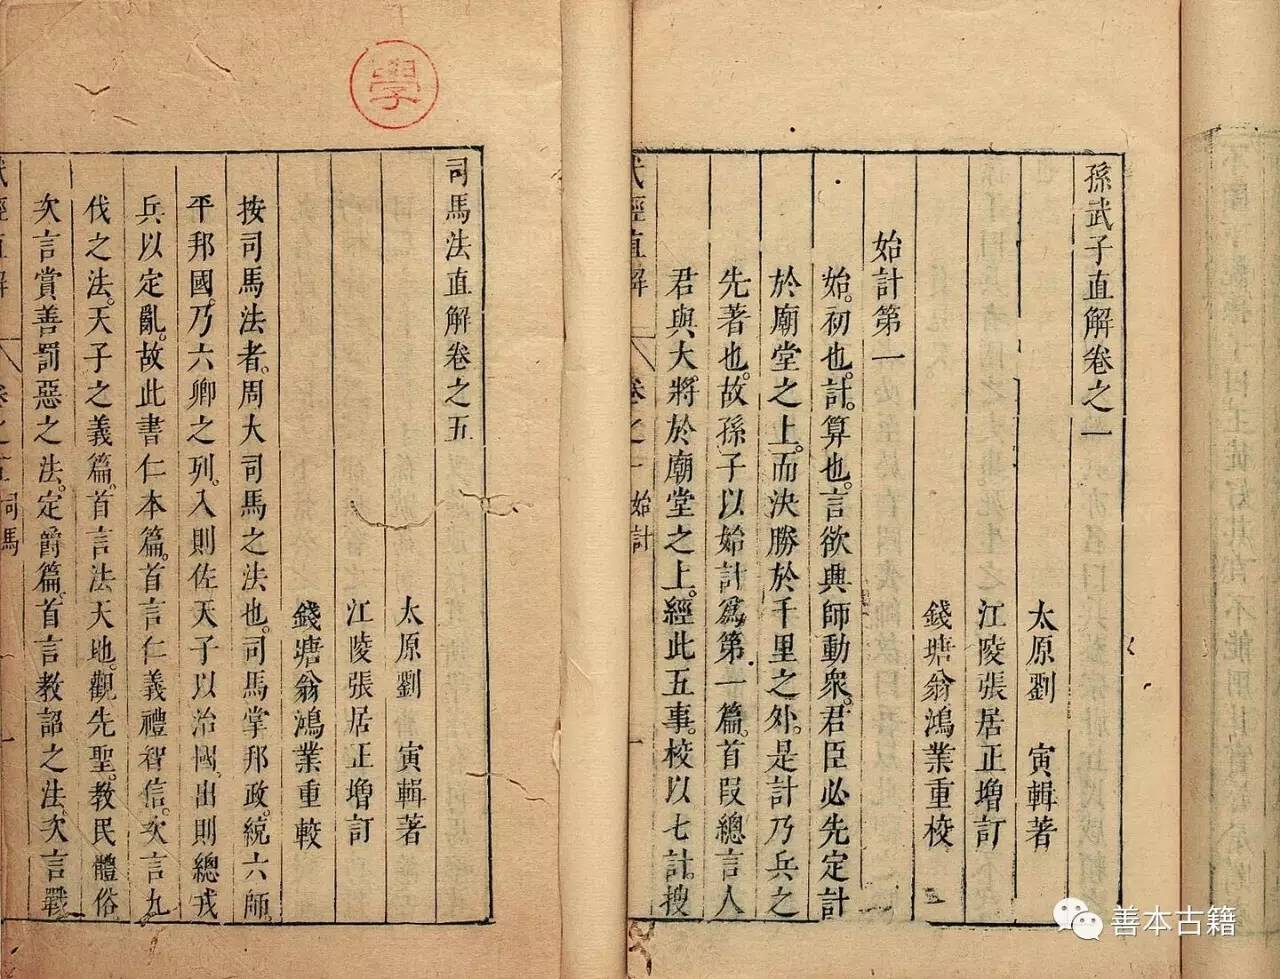 孫武子直解卷之一
太原劉　寅輯著
江陵張居正增訂
錢塘翁鴻業重校
始計第一
始。初也。計。算也。言欲興師動衆。君臣必先定計
於廟堂之上。而決勝於千里之外。是計乃兵之
先著也。故孫子以始計爲第一篇。首段總言人
君與大將於廟堂之上。經此五事。校以七計。搜
武經直解　卷之一　始計　一
學
司馬法直解卷之五
太原劉　寅輯著
江陵張居正增訂
錢塘翁鴻業重較
按司馬法者。周大司馬之法也。司馬掌邦政。統六師。
平邦國。乃六卿之列。入則佐天子以治國。出則總戎
兵以定亂。故此書仁本篇。首言仁義禮智信。次言九
伐之法。天子之義篇。首言法天地。觀先聖。教民體俗
次言賞善罰惡之法。定爵篇。首言教詔之法。次言戰
武經直解　卷之五　司馬　一
善本古籍